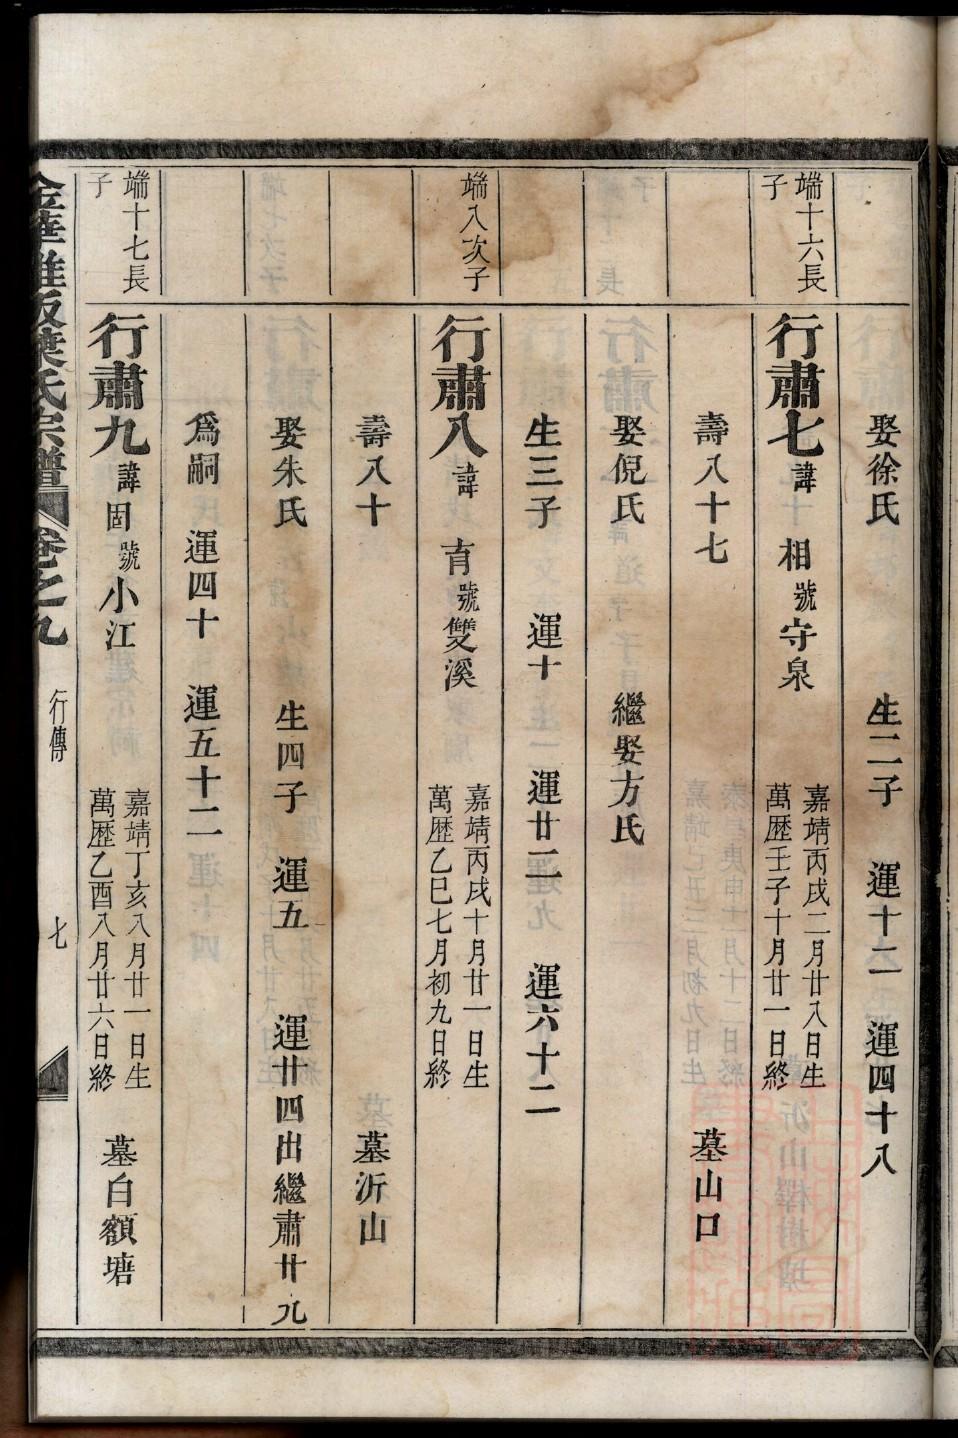 娶徐氏 生二子 運十二 運四十八
端十六長子
行肅七 諱相 號守泉 嘉靖丙戌二月廿八日生
萬歷壬子十月廿一日終
壽八十七 墓山口
娶倪氏 繼娶方氏
生三子 運十 運廿二 運六十二
端八次子
行肅八 諱育 號雙溪 嘉靖丙戌十月廿一日生
萬歷乙巳七月初九日終
壽八十 墓沂山
娶朱氏 生四子 運五 運廿四出繼肅廿九
爲嗣 運四十 運五十二
端十七長子
行肅九 諱固 號小江 嘉靖丁亥八月廿一日生
萬歷乙酉八月廿六日終
墓白額塘
葉氏宗譜 卷之九 行傳 七